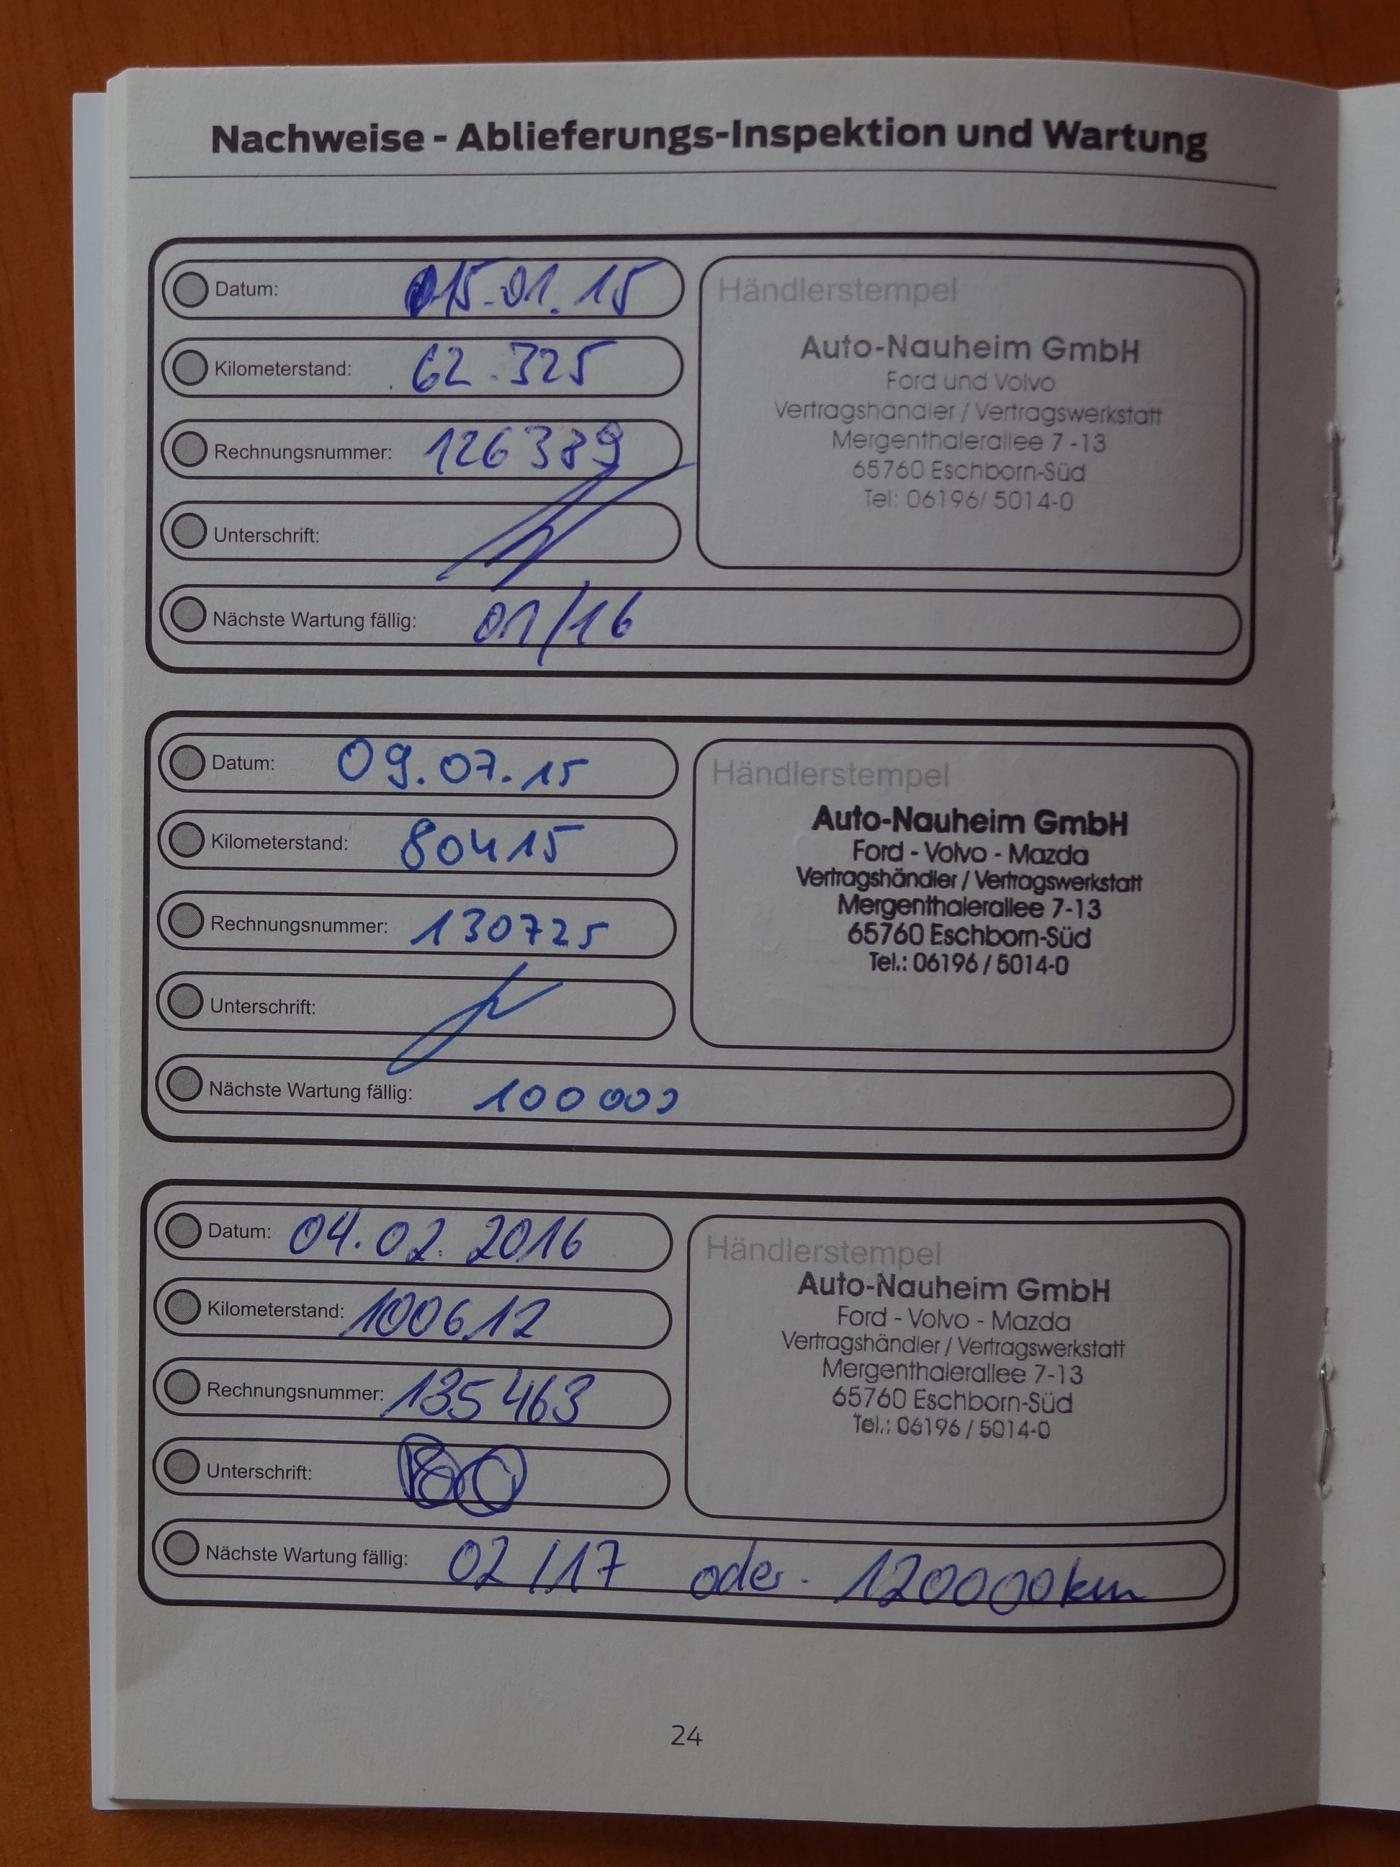 Nachweise - Ablieferungs-Inspektion und Wartung
Datum: 15.01.15
Kilometerstand: 62.325
Rechnungsnummer: 126389
Unterschrift:
Nächste Wartung fällig: 01/16
Händlerstempel
Auto-Nauheim GmbH
Ford und Volvo
Vertragshändler / Vertragswerkstatt
Mergenthalerallee 7 -13
65760 Eschborn-Süd
Tel: 06196/ 5014-0
Datum: 09.07.15
Kilometerstand: 80415
Rechnungsnummer: 130725
Unterschrift:
Nächste Wartung fällig: 100000
Händlerstempel
Auto-Nauheim GmbH
Ford - Volvo - Mazda
Vertragshändler / Vertragswerkstatt
Mergenthalerallee 7-13
65760 Eschborn-Süd
Tel.: 06196 / 5014-0
Datum: 04.02.2016
Kilometerstand: 100612
Rechnungsnummer: 135463
Unterschrift:
Nächste Wartung fällig: 02/17 oder 120000km
Händlerstempel
Auto-Nauheim GmbH
Ford - Volvo - Mazda
Vertragshändler / Vertragswerkstatt
Mergenthalerallee 7-13
65760 Eschborn-Süd
Tel.: 06196 / 5014-0
24